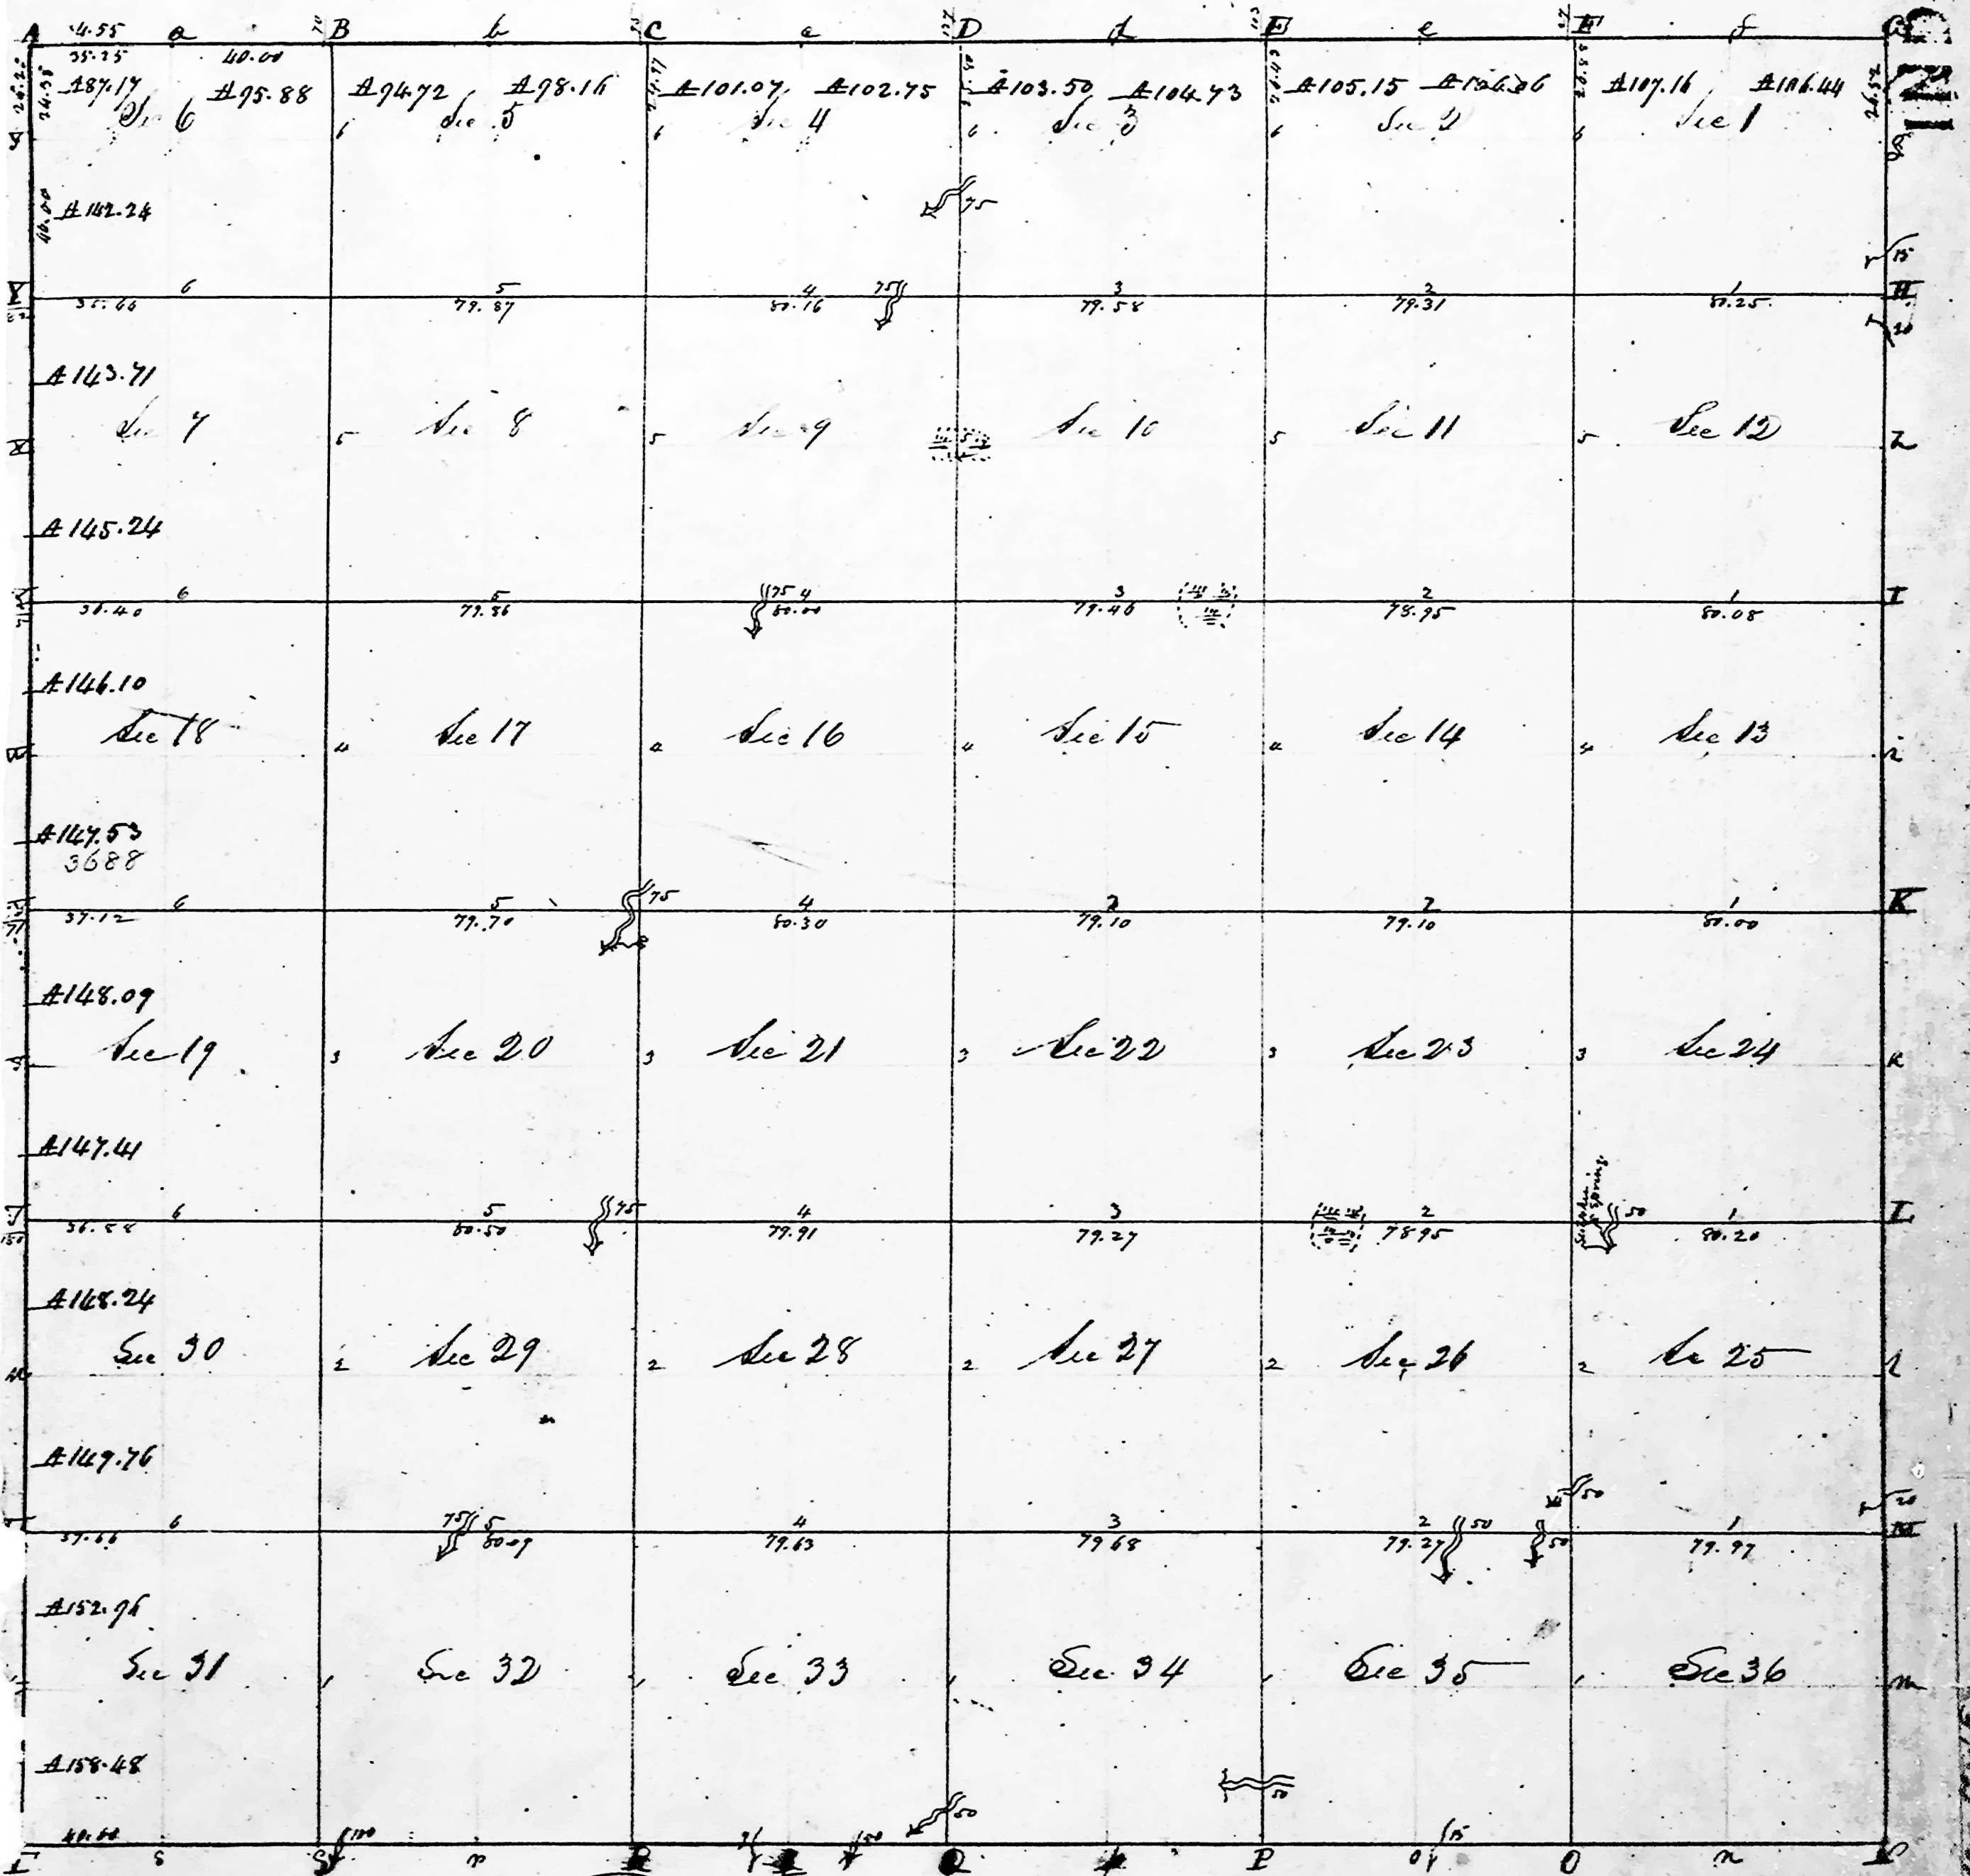 A 4.55 a B b C c D d E e F f G
35.25 40.00
A 87.17 A 95.88 A 94.72 A 98.16 A 101.07 A 102.75 A 103.50 A 104.73 A 105.15 A 107.16 A 106.44
Sec 6 Sec 5 Sec 4 Sec 3 Sec 2 Sec 1
6 6 6 6 6
24.97
26.52
40.00 A 142.24
75
15
6 5 4 75 3 2 1 H
35.66 79.87 80.16 79.58 79.31 80.25
20
A 143.71
Sec 7 Sec 8 Sec 9 Sec 10 Sec 11 Sec 12
5 5 5 5 h
A 145.24
6 5 75 4 3 2 1 I
36.40 79.86 80.00 79.46 78.95 80.08
A 146.10
Sec 18 Sec 17 Sec 16 Sec 15 Sec 14 Sec 13
4 4 4 4 4 i
A 147.53
3688
6 5 75 4 3 2 1 K
37.12 79.70 80.30 79.10 79.10 80.00
A 148.09
Sec 19 Sec 20 Sec 21 Sec 22 Sec 23 Sec 24
3 3 3 3 3 k
A 147.41
spring
6 5 75 4 3 2 50 1 L
36.88 80.50 79.91 79.27 78.95 80.20
A 148.24
Sec 30 Sec 29 Sec 28 Sec 27 Sec 26 Sec 25
2 2 2 2 2 l
A 149.76
50
20
6 75 5 4 3 2 50 50 1 M
37.66 80.09 79.63 79.68 79.27 79.97
A 152.96
Sec 31 Sec 32 Sec 33 Sec 34 Sec 35 Sec 36
1 1 1 1 1 m
A 158.48
50
50
40.00 100 50 15
T s S r R Q P O n N